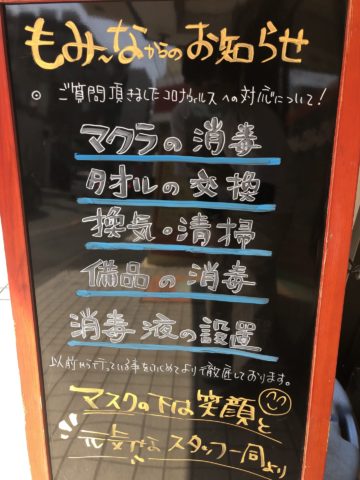 もみーなからのお知らせ
◎ ご質問頂きましたコロナウィルスへの対応について!
マクラの消毒
タオルの交換
換気・清掃
備品の消毒
消毒液の設置
以前から行っている事をふくめてより徹底しております。
マスクの下は笑顔と
元気なスタッフ一同より